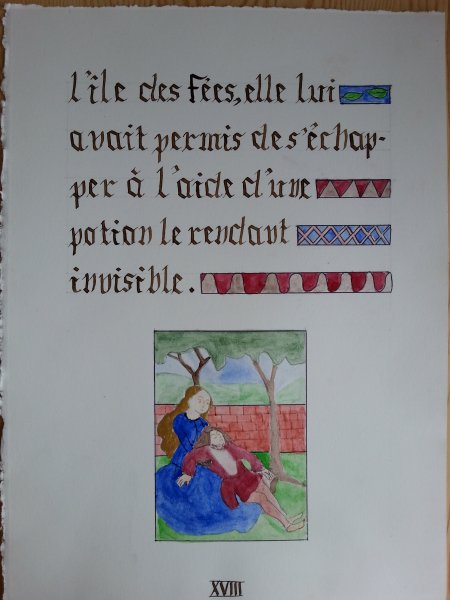 l'île des Fées, elle lui
avait permis de s'échap-
per à l'aide d'une
potion le rendant
invisible.
XVIII